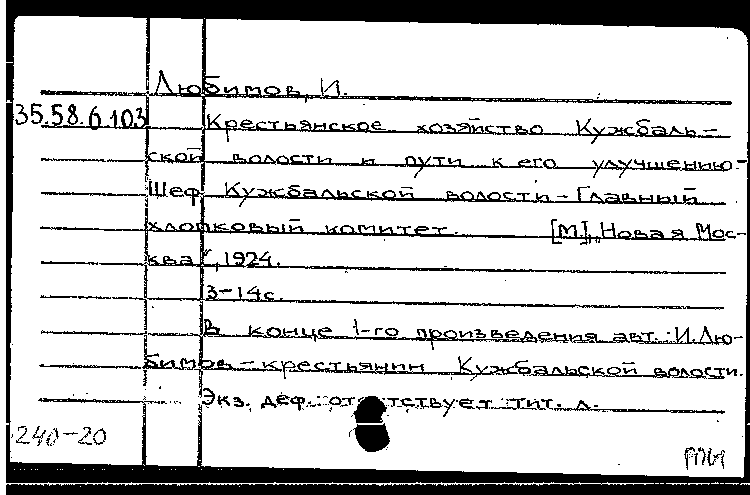 Любимов, И.
35.58.6.103 Крестьянское хозяйство Кужбаль-
ской волости и пути к его улучшению.-
Шеф Кужбальской волости - Главный
хлопковый комитет. [М.], „Новая Мос-
ква", 1924.
3-14с.
В конце 1-го произведения авт.: И.Лю-
бимов - крестьянин Кужбальской волости.
Экз. деф.: отсутствует тит. л.
240-20